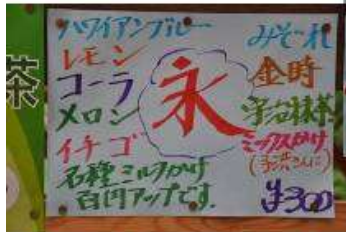 ハワイアンブルー
レモン
コーラ
メロン
イチゴ
各種ミルクかけ
百円アップです.
氷
みぞれ
金時
宇治抹茶
ミックスかけ
¥300
茶